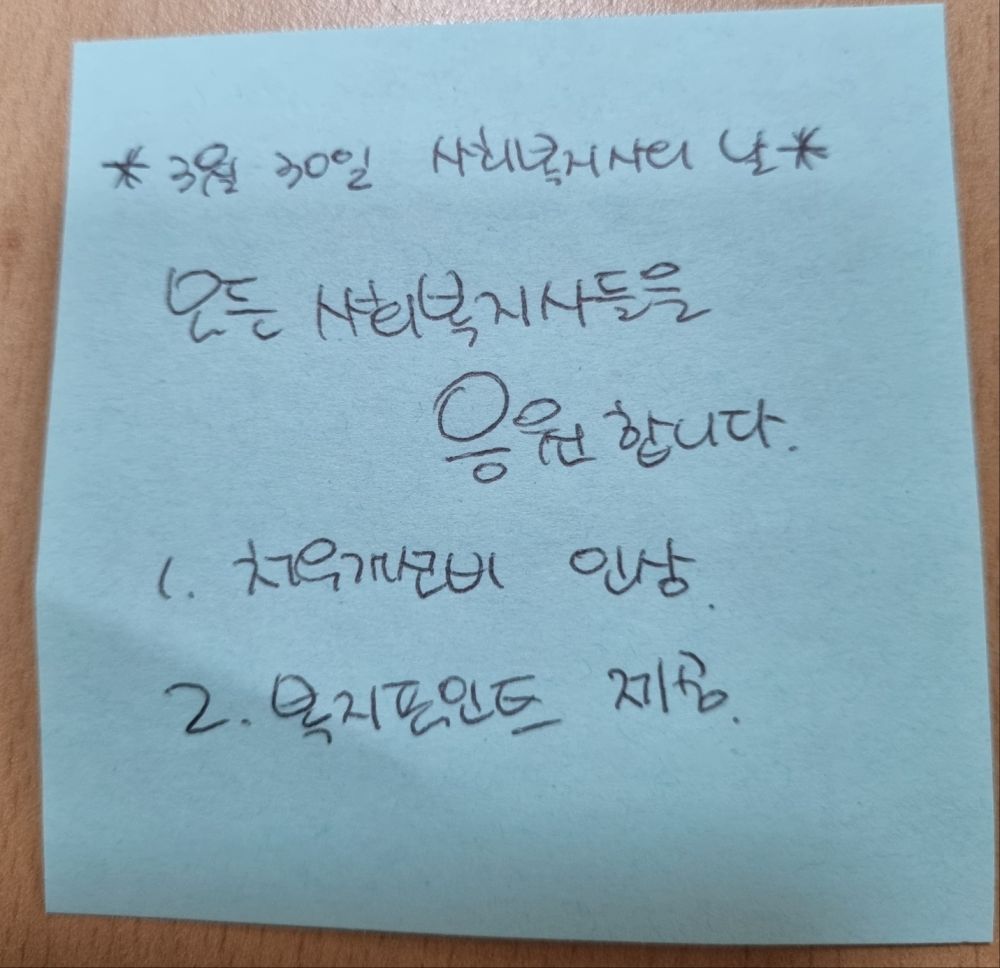 *3월 30일 사회복지사의 날*
모든 사회복지사들을
응원합니다.
1. 처우개선비 인상.
2. 복지포인트 제공.